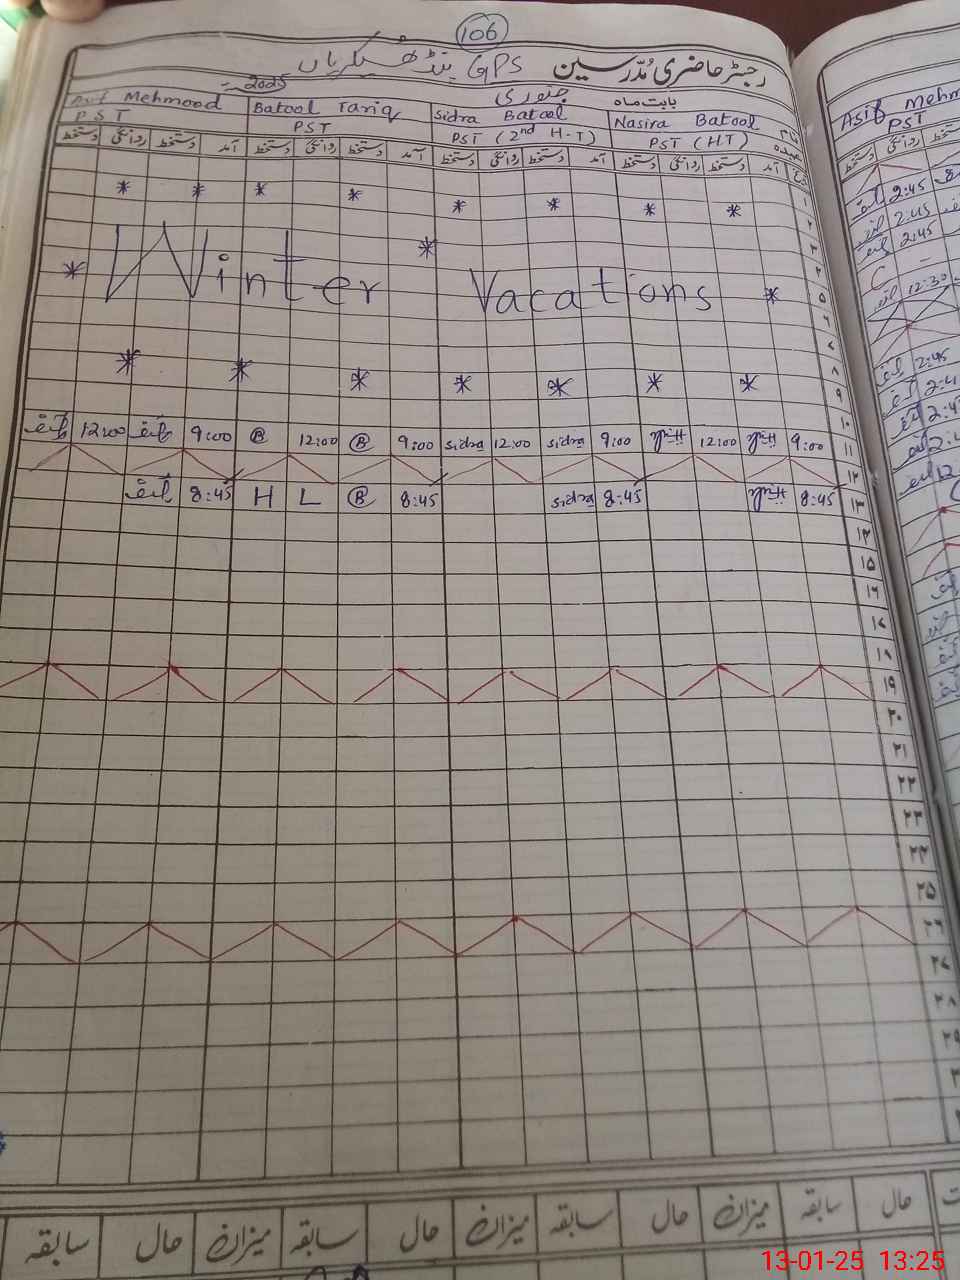 106
رجسٹر حاضری مُدّرسین GPS پنڈ ٹھیکریاں
بابت ماہ جنوری 2025
Nasira Batool Sidra Batool Batool Tariq Asif Mehmood
PST (HT) PST (2nd H-T) PST PST
آمد دستخط روانگی دستخط آمد دستخط روانگی دستخط آمد دستخط روانگی دستخط آمد دستخط روانگی دستخط
۱
۲
۳
۴
Winter Vacations
۵
۶
۷
۸
۹
۱۰
۱۱ 9:00 12:00 9:00 sidra 12:00 sidra 9:00 B 12:00 B 9:00 12:00
۱۲
۱۳ 8:45 8:45 sidra 8:45 B H L 8:45
۱۴
۱۵
۱۶
۱۷
۱۸
۱۹
۲۰
۲۱
۲۲
۲۳
۲۴
۲۵
۲۶
۲۷
۲۸
۲۹
حال سابقہ میزان حال سابقہ میزان حال سابقہ میزان حال سابقہ
Asif Mehm
PST
دستخط روانگی دستخط
2:45
2:45
2:45
C -
12:30
2:45
2:4
2:4
2:4
12
13-01-25 13:25